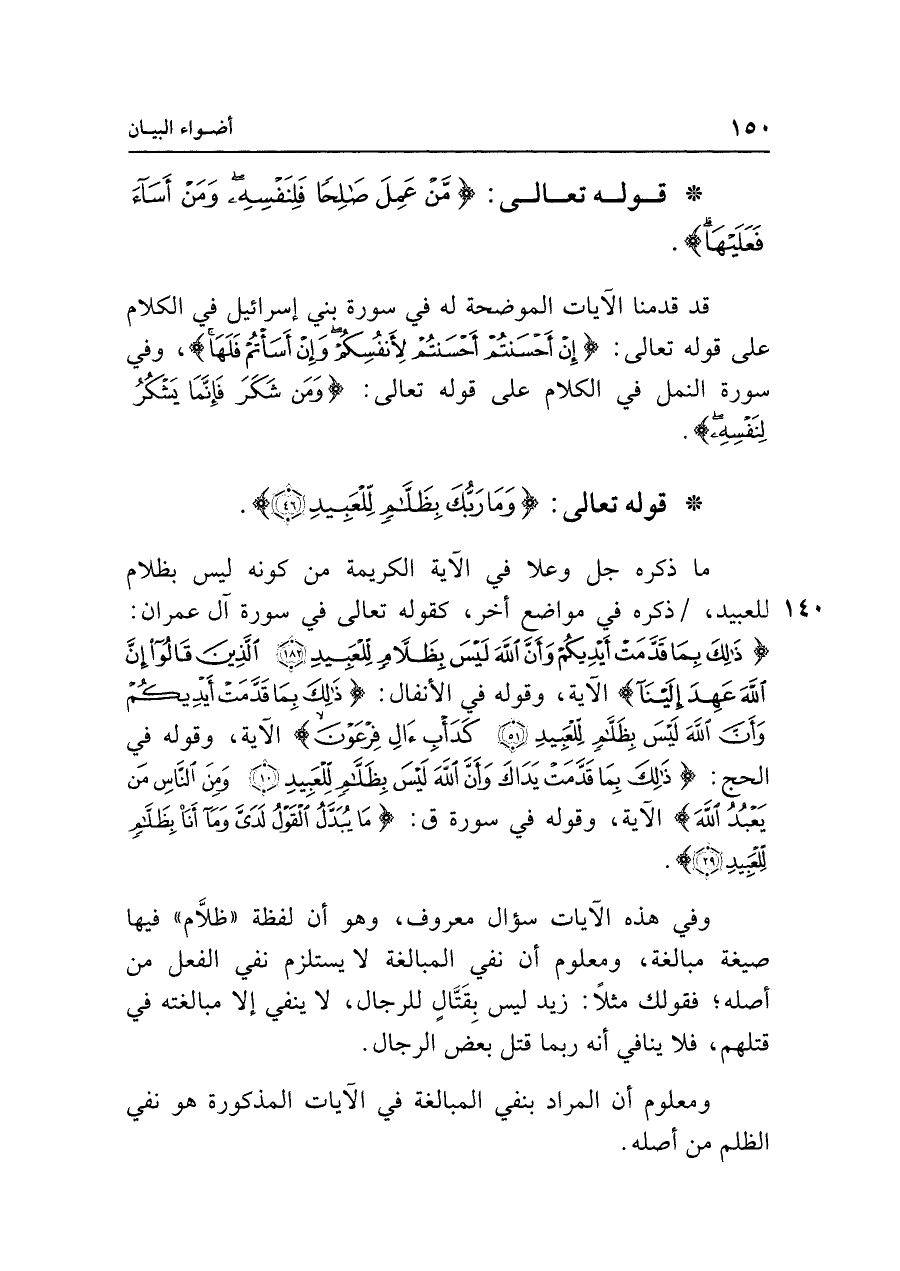 ١٥٠ أضواء البيان
* قوله تعالى: ﴿مَّنْ عَمِلَ صَٰلِحًا فَلِنَفْسِهِۦۖ وَمَنْ أَسَآءَ
فَعَلَيْهَاۗ﴾.
قد قدمنا الآيات الموضحة له في سورة بني إسرائيل في الكلام
على قوله تعالى: ﴿إِنْ أَحْسَنتُمْ أَحْسَنتُمْ لِأَنفُسِكُمْۖ وَإِنْ أَسَأْتُمْ فَلَهَاۚ﴾، وفي
سورة النمل في الكلام على قوله تعالى: ﴿وَمَن شَكَرَ فَإِنَّمَا يَشْكُرُ
لِنَفْسِهِۦۖ﴾.
* قوله تعالى: ﴿وَمَا رَبُّكَ بِظَلَّٰمٍ لِّلْعَبِيدِ ٤٦﴾.
ما ذكره جل وعلا في الآية الكريمة من كونه ليس بظلام
١٤٠ للعبيد، /ذكره في مواضع أخر، كقوله تعالى في سورة آل عمران:
﴿ذَٰلِكَ بِمَا قَدَّمَتْ أَيْدِيكُمْ وَأَنَّ ٱللَّهَ لَيْسَ بِظَلَّامٍ لِّلْعَبِيدِ ١٨٢ ٱلَّذِينَ قَالُوٓا۟ إِنَّ
ٱللَّهَ عَهِدَ إِلَيْنَآ﴾ الآية، وقوله في الأنفال: ﴿ذَٰلِكَ بِمَا قَدَّمَتْ أَيْدِيكُمْ
وَأَنَّ ٱللَّهَ لَيْسَ بِظَلَّٰمٍ لِّلْعَبِيدِ ٥١ كَدَأْبِ ءَالِ فِرْعَوْنَۙ﴾ الآية، وقوله في
الحج: ﴿ذَٰلِكَ بِمَا قَدَّمَتْ يَدَاكَ وَأَنَّ ٱللَّهَ لَيْسَ بِظَلَّٰمٍ لِّلْعَبِيدِ ١٠ وَمِنَ ٱلنَّاسِ مَن
يَعْبُدُ ٱللَّهَ﴾ الآية، وقوله في سورة ق: ﴿مَا يُبَدَّلُ ٱلْقَوْلُ لَدَىَّ وَمَآ أَنَا۠ بِظَلَّٰمٍ
لِّلْعَبِيدِ ٢٩﴾.
وفي هذه الآيات سؤال معروف، وهو أن لفظة «ظلَّام» فيها
صيغة مبالغة، ومعلوم أن نفي المبالغة لا يستلزم نفي الفعل من
أصله؛ فقولك مثلاً: زيد ليس بِقَتَّالٍ للرجال، لا ينفي إلا مبالغته في
قتلهم، فلا ينافي أنه ربما قتل بعض الرجال.
ومعلوم أن المراد بنفي المبالغة في الآيات المذكورة هو نفي
الظلم من أصله.